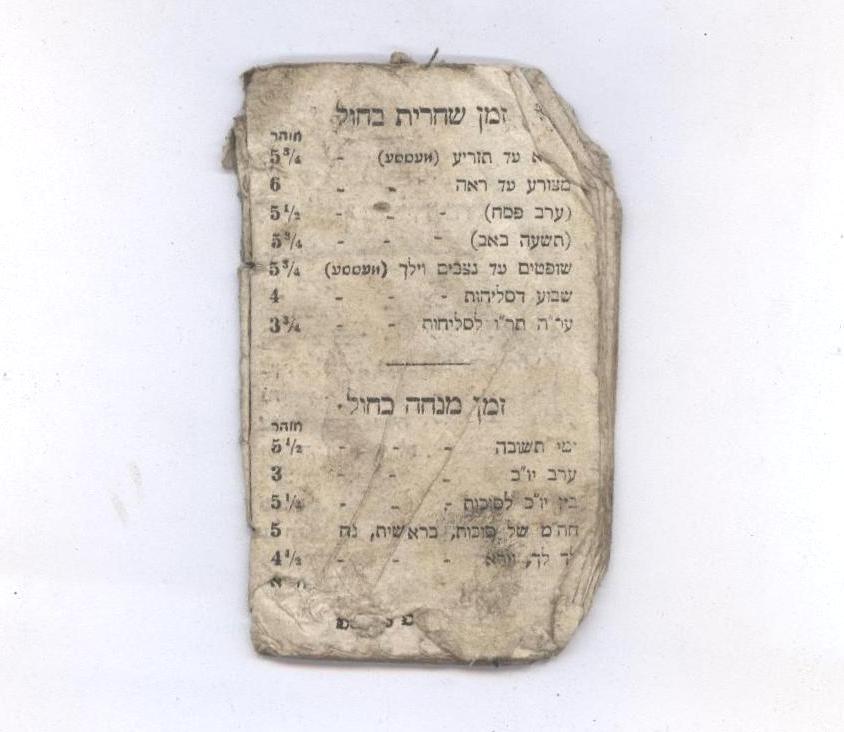 זמן שחרית בחול
אוהר
עד תזריע (מעססע) - 5³/₄
מצורע עד ראה - - 6
(ערב פסח) - - - 5¹/₂
(תשעה באב) - - - 5³/₄
שופטים עד נצבים וילך (מעססע) 5³/₄
שבוע דסליחות - - - 4
ער״ה תר״ו לסליחות - - 3³/₄
זמן מנחה בחול
אוהר
ימי תשובה - - - 5¹/₂
ערב יו״כ - - - 3
בין יו״כ לסוכות - - - 5¹/₄
חה״מ של סוכות, בראשית, נח 5
לך לך, וירא - - - 4¹/₂